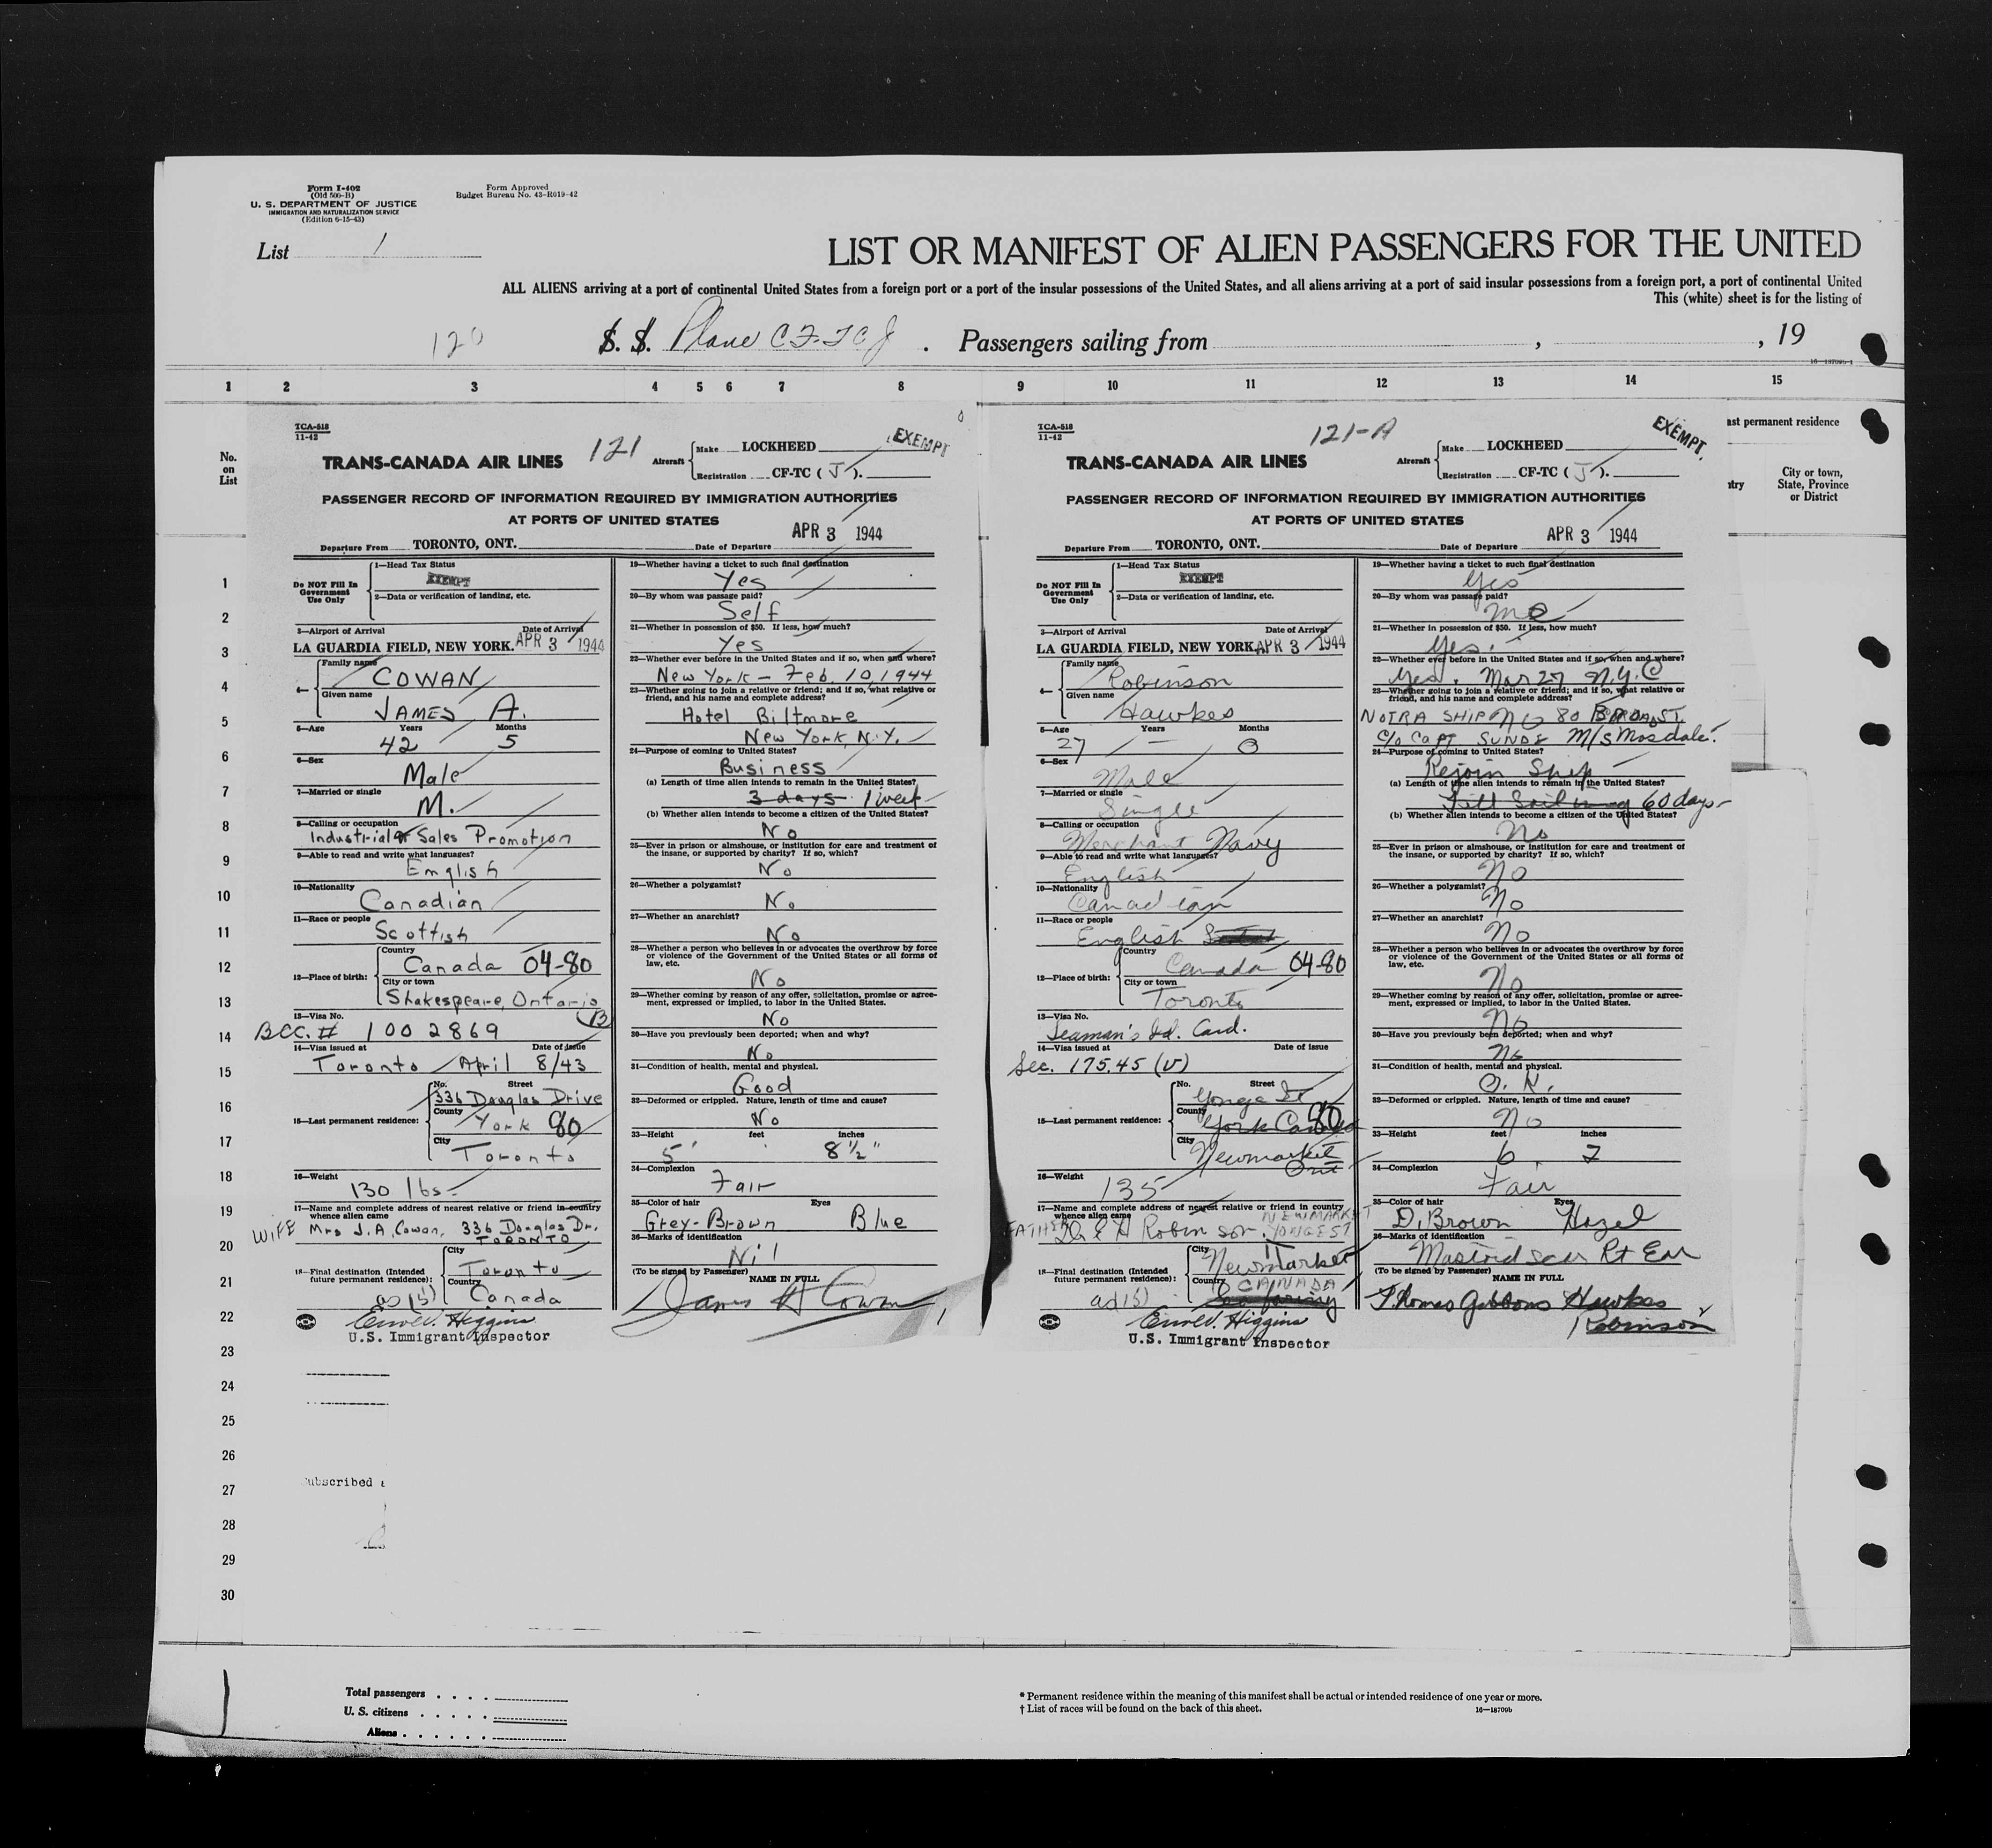 Form I-402
(Old 500-B)
U. S. DEPARTMENT OF JUSTICE
IMMIGRATION AND NATURALIZATION SERVICE
(Edition 6-15-43)
Form Approved
Budget Bureau No. 43-R019-42
List 1
LIST OR MANIFEST OF ALIEN PASSENGERS FOR THE UNITED
ALL ALIENS arriving at a port of continental United States from a foreign port or a port of the insular possessions of the United States, and all aliens arriving at a port of said insular possessions from a foreign port, a port of continental United
This (white) sheet is for the listing of
120 S. S. Plane CF-TCJ . Passengers sailing from , , 19
1 2 3 4 5 6 7 8 9 10 11 12 13 14 15
No.
on
List
TCA-518
11-42
121
EXEMPT
TRANS-CANADA AIR LINES
Aircraft Make LOCKHEED
Registration CF-TC ( J ).
PASSENGER RECORD OF INFORMATION REQUIRED BY IMMIGRATION AUTHORITIES
AT PORTS OF UNITED STATES
Departure From TORONTO, ONT. Date of Departure APR 3 1944
Do NOT Fill In
Government
Use Only
1—Head Tax Status
EXEMPT
2—Data or verification of landing, etc.
3—Airport of Arrival Date of Arrival
LA GUARDIA FIELD, NEW YORK. APR 3 1944
4— Family name
COWAN
Given name
JAMES A.
5—Age Years Months
42 5
6—Sex
Male
7—Married or single
M.
8—Calling or occupation
Industrial & Sales Promotion
9—Able to read and write what languages?
English
10—Nationality
Canadian
11—Race or people
Scottish
12—Place of birth: Country
Canada 04-80
City or town
Shakespeare, Ontario
13—Visa No.
BCC. # 1002869 B
14—Visa issued at Date of issue
Toronto April 8/43
15—Last permanent residence: No. Street
336 Douglas Drive
County
York 80
City
Toronto
16—Weight
130 lbs.
17—Name and complete address of nearest relative or friend in country
whence alien came
WIFE Mrs J.A. Cowan, 336 Douglas Dr.
TORONTO
18—Final destination (Intended
future permanent residence): City
Toronto
Country
Canada
U.S. Immigrant Inspector
19—Whether having a ticket to such final destination
Yes
20—By whom was passage paid?
Self
21—Whether in possession of $50. If less, how much?
Yes
22—Whether ever before in the United States and if so, when and where?
New York - Feb. 10, 1944
23—Whether going to join a relative or friend; and if so, what relative or
friend, and his name and complete address?
Hotel Biltmore
New York, N.Y.
24—Purpose of coming to United States?
Business
(a) Length of time alien intends to remain in the United States?
3 days 1 week
(b) Whether alien intends to become a citizen of the United States?
No
25—Ever in prison or almshouse, or institution for care and treatment of
the insane, or supported by charity? If so, which?
No
26—Whether a polygamist?
No
27—Whether an anarchist?
No
28—Whether a person who believes in or advocates the overthrow by force
or violence of the Government of the United States or all forms of
law, etc.
No
29—Whether coming by reason of any offer, solicitation, promise or agree-
ment, expressed or implied, to labor in the United States.
No
30—Have you previously been deported; when and why?
No
31—Condition of health, mental and physical.
Good
32—Deformed or crippled. Nature, length of time and cause?
No
33—Height feet inches
5' 8½"
34—Complexion
Fair
35—Color of hair Eyes
Grey-Brown Blue
36—Marks of identification
Nil
(To be signed by Passenger) NAME IN FULL
James A Cowan
TCA-518
11-42
121-A
EXEMPT
TRANS-CANADA AIR LINES
Aircraft Make LOCKHEED
Registration CF-TC ( J ).
PASSENGER RECORD OF INFORMATION REQUIRED BY IMMIGRATION AUTHORITIES
AT PORTS OF UNITED STATES
Departure From TORONTO, ONT. Date of Departure APR 3 1944
Do NOT Fill In
Government
Use Only
1—Head Tax Status
EXEMPT
2—Data or verification of landing, etc.
3—Airport of Arrival Date of Arrival
LA GUARDIA FIELD, NEW YORK. APR 3 1944
4— Family name
Robinson
Given name
Hawkes
5—Age Years Months
27 — 0
6—Sex
Male
7—Married or single
Single
8—Calling or occupation
Merchant Navy
9—Able to read and write what languages?
English
10—Nationality
Canadian
11—Race or people
English
12—Place of birth: Country
Canada 04-80
City or town
Toronto
13—Visa No.
Seaman's Id. Card.
14—Visa issued at Date of issue
Sec. 175.45 (v)
15—Last permanent residence: No. Street
Yonge St
County
York Canada 80
City
Newmarket
Ont
16—Weight
135
17—Name and complete address of nearest relative or friend in country
whence alien came NEWMARKET
FATHER Robinson. YONGE ST
18—Final destination (Intended
future permanent residence): City
Newmarket
Country
CANADA
U.S. Immigrant Inspector
19—Whether having a ticket to such final destination
Yes
20—By whom was passage paid?
Me
21—Whether in possession of $50. If less, how much?
Yes.
22—Whether ever before in the United States and if so, when and where?
Yes. Mar 27 N.Y.C
23—Whether going to join a relative or friend; and if so, what relative or
friend, and his name and complete address?
NOTRA SHIP 80 BROAD ST
c/o Capt SUNDE M/S Mosdale.
24—Purpose of coming to United States?
Rejoin Ship
(a) Length of time alien intends to remain in the United States?
Till Sailing 60 days
(b) Whether alien intends to become a citizen of the United States?
No
25—Ever in prison or almshouse, or institution for care and treatment of
the insane, or supported by charity? If so, which?
No
26—Whether a polygamist?
No
27—Whether an anarchist?
No
28—Whether a person who believes in or advocates the overthrow by force
or violence of the Government of the United States or all forms of
law, etc.
No
29—Whether coming by reason of any offer, solicitation, promise or agree-
ment, expressed or implied, to labor in the United States.
No
30—Have you previously been deported; when and why?
No
31—Condition of health, mental and physical.
O.K.
32—Deformed or crippled. Nature, length of time and cause?
No
33—Height feet inches
6 2
34—Complexion
Fair
35—Color of hair Eyes
D. Brown Hazel
36—Marks of identification
Mastoid scar Rt Ear
(To be signed by Passenger) NAME IN FULL
Thomas Gibbons Hawkes
Robinson
ast permanent residence
ntry
City or town,
State, Province
or District
1
2
3
4
5
6
7
8
9
10
11
12
13
14
15
16
17
18
19
20
21
22
23
24
25
26
27
28
29
30
ubscribed a
Total passengers
U. S. citizens
Aliens
* Permanent residence within the meaning of this manifest shall be actual or intended residence of one year or more.
† List of races will be found on the back of this sheet.
16—18709b